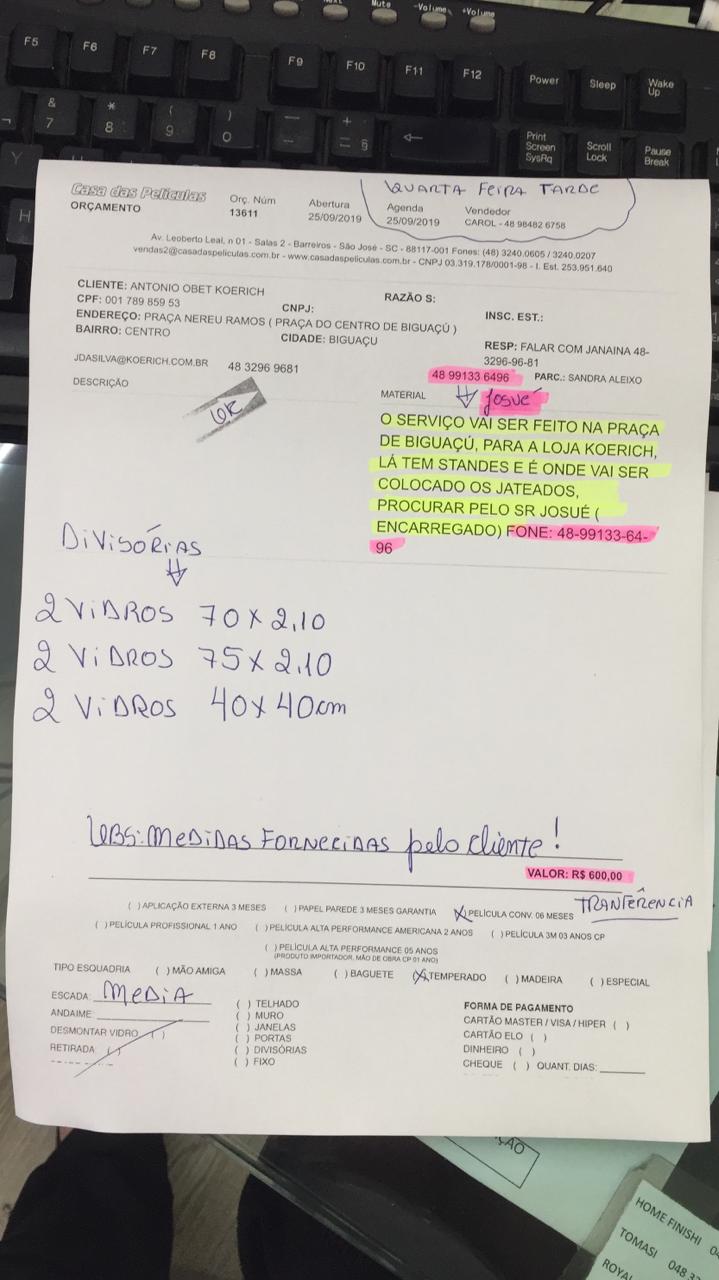 Mute -Volume +Volume
F5 F6 F7 F8 F9 F10 F11 F12 Power Sleep Wake Up
& 7 * 8 ( 9 ) 0 + = § Print Screen SysRq Scroll Lock Pause Break
Y
H
QUARTA FEIRA TARDE
Casa das Películas
ORÇAMENTO
Orç. Núm
13611
Abertura
25/09/2019
Agenda
25/09/2019
Vendedor
CAROL - 48 98482 6758
Av. Leoberto Leal, n 01 - Salas 2 - Barreiros - São José - SC - 88117-001 Fones: (48) 3240.0605 / 3240.0207
vendas2@casadaspeliculas.com.br - www.casadaspeliculas.com.br - CNPJ 03.319.178/0001-98 - I. Est. 253.951.640
CLIENTE: ANTONIO OBET KOERICH RAZÃO S:
CPF: 001 789 859 53 CNPJ: INSC. EST.:
ENDEREÇO: PRAÇA NEREU RAMOS ( PRAÇA DO CENTRO DE BIGUAÇÚ )
BAIRRO: CENTRO CIDADE: BIGUAÇU
RESP: FALAR COM JANAINA 48-
3296-96-81
JDASILVA@KOERICH.COM.BR 48 3296 9681
48 99133 6496 PARC.: SANDRA ALEIXO
DESCRIÇÃO
MATERIAL Josué
OK
O SERVIÇO VAI SER FEITO NA PRAÇA
DE BIGUAÇÚ, PARA A LOJA KOERICH,
LÁ TEM STANDES E É ONDE VAI SER
COLOCADO OS JATEADOS,
PROCURAR PELO SR JOSUÉ (
ENCARREGADO) FONE: 48-99133-64-
96
DIVISÓRIAS
2 VIDROS 70 x 2,10
2 VIDROS 75 x 2.10
2 VIDROS 40 x 40cm
OBS: MEDIDAS FORNECIDAS pelo cliente!
VALOR: R$ 600,00
TRANFERÊNCIA
( ) APLICAÇÃO EXTERNA 3 MESES ( ) PAPEL PAREDE 3 MESES GARANTIA (X) PELÍCULA CONV. 06 MESES
( ) PELÍCULA PROFISSIONAL 1 ANO ( ) PELÍCULA ALTA PERFORMANCE AMERICANA 2 ANOS ( ) PELÍCULA 3M 03 ANOS CP
( ) PELÍCULA ALTA PERFORMANCE 05 ANOS
(PRODUTO IMPORTADOR, MÃO DE OBRA CP 01 ANO)
TIPO ESQUADRIA ( ) MÃO AMIGA ( ) MASSA ( ) BAGUETE (X) TEMPERADO ( ) MADEIRA ( ) ESPECIAL
ESCADA: MEDIA
ANDAIME:
DESMONTAR VIDRO ( )
RETIRADA: ( )
( ) TELHADO
( ) MURO
( ) JANELAS
( ) PORTAS
( ) DIVISÓRIAS
( ) FIXO
FORMA DE PAGAMENTO
CARTÃO MASTER / VISA / HIPER ( )
CARTÃO ELO ( )
DINHEIRO ( )
CHEQUE ( ) QUANT. DIAS:
HOME FINISHI 04
TOMASI 048 32
ROYAL